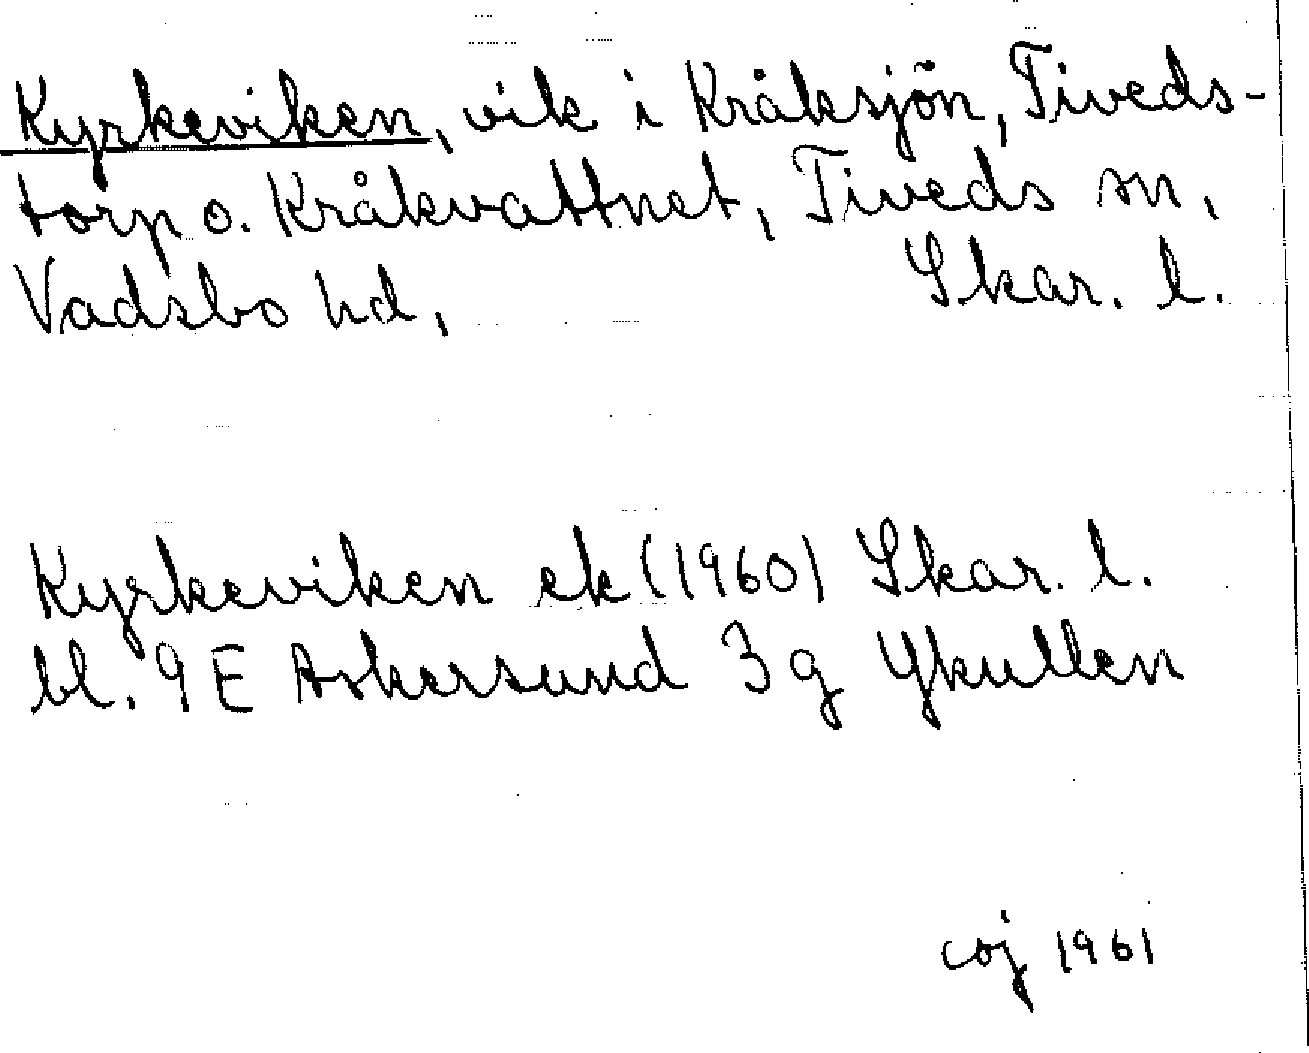 Kyrkeviken, vik i Kråksjön, Tiveds-
torp o. Kråkvattnet, Tiveds sn,
Vadsbo hd, Skar. l.
Kyrkeviken ek (1960) Skar. l.
bl. 9E Askersund 3g Ykullen
coj 1961